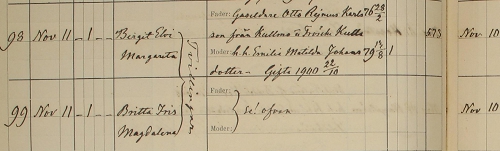 Fader: Gårdlare Otto Rejnus Karls 76 28/2
98 Nov 11 - 1 - - Birgit Elvi son från Kullmo
Margareta Moder: h. h. Emilia Matilda Johans 79 13/8 1 Nov 10
dotter - Gifta 1900 22/10
Tvillingar
Fader:
99 Nov 11 - 1 - - Britta Iris Se! ofvan Nov 10
Magdalena Moder: